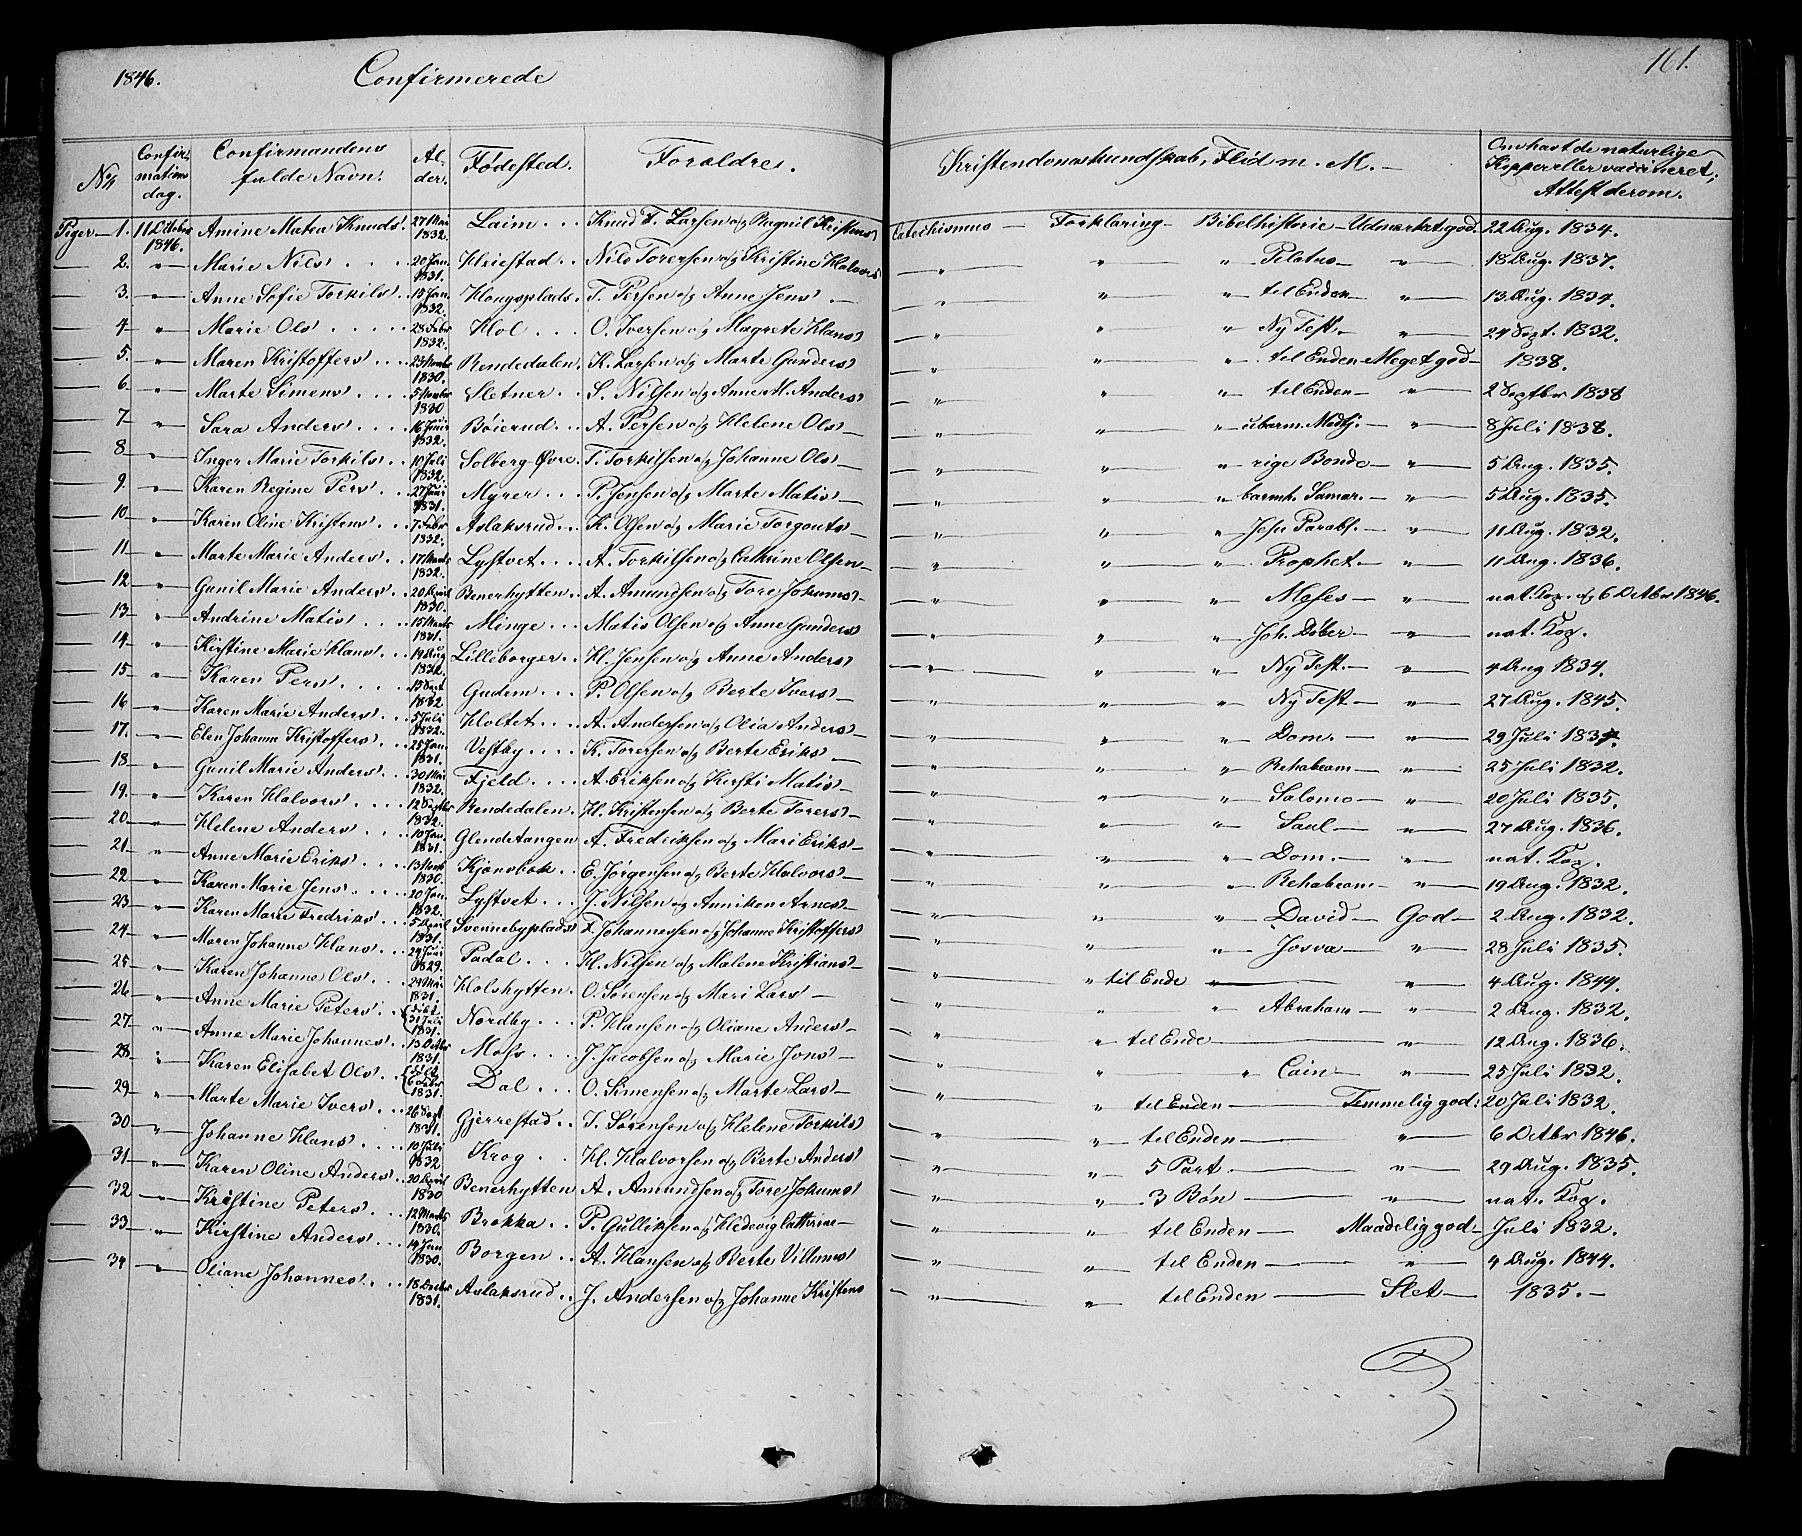 1846. Confirmerede 161.
No Confirmations dag. Confirmandens fulde Navn. Alder. Fødested. Forældre. Kristendomskundskab, Flid m. M. Om havt de naturlige Kopper eller vaccineret, Attest derom.
Piger 1. 11 Octobr 1846. Amine Matea Knuds. 27 Mai 1832. Laim Knud F. Larsen og Ragnil Kristens Catechismus Forklaring Bibelhistorie Udmærket god. 22 Aug. 1834.
2. " Marie Nils 20 Jan. 1831. Hriestad Nils Torersen og Kristine Halvors " " " Pilatus " 18 Aug. 1837.
3. " Anne Sofie Torkils 15 Jan. 1832. Hougsplads T. Persen og Anne Jens " " " til Enden " 13 Aug. 1834.
4 " Marie Ols 28 Febr 1832. Hol O. Iversen og Magrete Hans " " " Ny Test " 24 Sept. 1832.
5. " Maren Kristoffers 23 Novbr 1830. Rendedalen K. Larsen og Marte Gunders " " " til Enden Meget god 1838.
6 " Marte Simens 5 Novbr 1830 Sletner S. Nilsen og Anne M. Anders " " " til Enden " 2 Septbr 1838
7 " Sara Anders 16 Juni 1832. Bøierud A. Persen og Helene Ols " " " ubarm. Medtj. " 8 Juli 1838.
8 " Inger Marie Torkils 10 Juli 1832. Solberg Øvre T. Torkilsen og Johanne Ols " " " rige Bonde " 5 Aug. 1835.
9. " Karen Regine Pers 27 Juni 1831. Myrer P. Jensen og Marte Matis " " " barmh. Samar. " 5 Aug. 1835.
10. " Karen Oline Kristens 7 Febr 1832. Aslaksrud K. Olsen og Marie Torgouts " " " Jesu Parabl. " 11 Aug. 1832.
11. " Marte Marie Anders 17 Marts 1832. Lystvet A. Torkilsen og Cathrine Olsen " " " Prophet " 11 Aug. 1836.
12 " Gunil Marie Anders 20 April 1830. Benerhytten A. Amundsen og Tore Johums " " " Moses " nat. Kop. og 6 Octbr 1846.
13. " Andrine Matis 15 Marts 1831. Minge Matis Olsen og Anne Gunders " " " Joh. Døber " nat. Kop.
14 " Kirstine Marie Hans 19 Aug 1832. Lilleborger H. Jensen og Anne Anders " " " Ny Test " 4 Aug 1834.
15. " Karen Pers 15 Sept 1832 Gudem P. Olsen og Berte Ivers " " " Ny Test " 27 Aug. 1845.
16 " Karen Marie Anders 5 Juli 1832. Holtet A. Andersen og Olia Anders " " " Dom. " 29 Juli 1837.
17. " Elen Johanne Kristoffers 25 Jan. 1831. Vestby K. Torersen og Berte Eriks " " " Rehabeam " 25 Juli 1832.
18 " Gunil Marie Anders 30 Mai 1832. Fjeld A. Eriksen og Kirsti Matis " " " Salomo " 20 Juli 1835.
19. " Karen Halvors 12 Septbr 1832 Rendedalen H. Kristensen og Berte Torers " " " Saul " 27 Aug. 1836.
20 " Helene Anders 10 Jan. 1831. Glendetangen A. Fredriksen og Mari Eriks " " " Dom. " nat. Kop.
21 " Anne Marie Eriks 13 Novb 1830. Kjønsbok E. Jørgensen og Berte Halvors " " " Rehabeam " 19 Aug. 1832.
22 " Karen Marie Jens 20 Jan. 1832. Lystvet J. Nilsen og Anniken Arnes " " " David God 2 Aug. 1832.
23 " Karen Marie Fredriks 5 April 1831. Svennebyplads F. Johannessen og Johanne Kristoffers " " " Josva " 28 Juli 1835.
24 " Maren Johanne Hans 24 Juni 1829. Padal H. Nilsen og Malene Kristians " " til Ende " 4 Aug. 1844.
25 " Karen Johanne Ols 29 Mai 1831. Holshytten O. Sørensen og Mari Lars " " " Abraham " 2 Aug. 1832.
26 " Anne Marie Peters (døbt 31 Juli 1831. Nordby P. Hansen og Oliane Anders " til Ende " 12 Aug. 1836.
27 " Anne Marie Johannes 13 Octbr 1831. Moss J. Jacobsen og Marie Jons " " " Cain " 25 Juli 1832.
28 " Karen Elisabet Ols (døbt 6 Octbr 1831. Dal O. Simensen og Marte Lars " " til Enden Temmelig god: 20 Juli 1832.
29 " Marte Marie Ivers 26 Sept 1831. Gjerrestad I. Sørensen og Helene Torkils " " til Enden " 6 Octbr 1846.
30 " Johanne Hans 10 Juli 1832 Krog H. Halvorsen og Berte Anders " " 5 Part " 29 Aug. 1835.
31 " Karen Oline Anders 20 April 1830 Benerhytten A. Amundsen og Tore Johums " " 3 Bøn " nat. Kop.
32 " Kristine Peters 12 Marts 1830. Brokka P. Gulliksen og Hedevig Cathrine " " til Enden Maadelig god Juli 1832.
33 " Kirstine Anders 14 Jan 1830. Borgen A. Hansen og Berte Villums " " til Enden " 4 Aug. 1844.
34 " Oliane Johannes 18 Decbr 1831. Aslaksrud J. Andersen og Johanne Kristens " " til Enden Slet 1835.